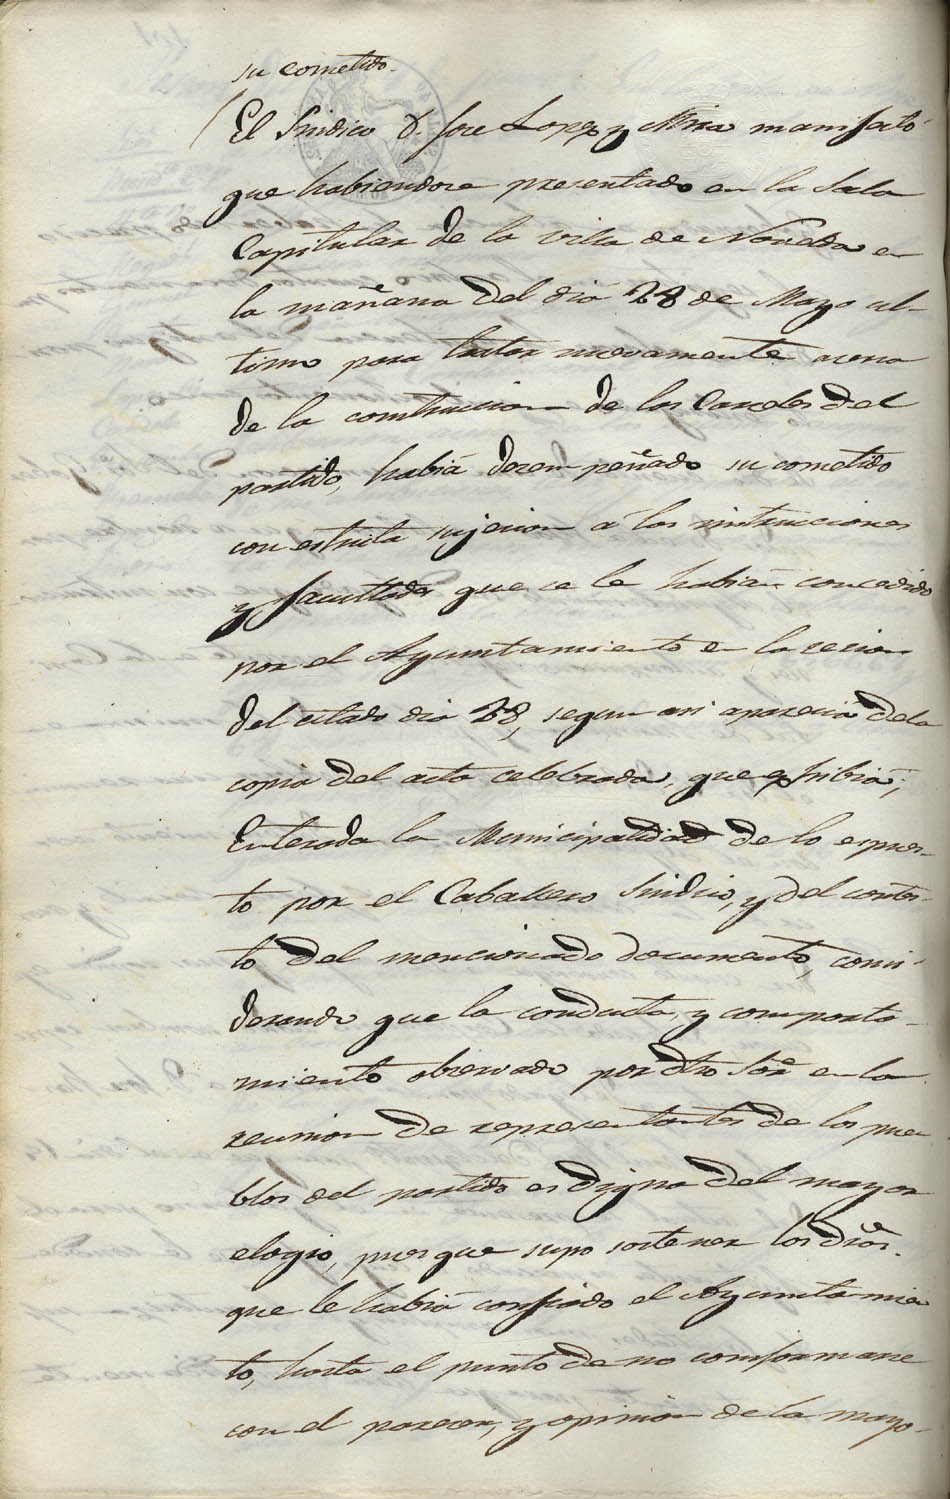 su cometido.
El Sindico D. Jose Lopez y Mira manifestó
que habiendose presentado en la Sala
Capitular de la villa de Novelda en
la mañana del dia 28 de Mayo ul-
timo para tratar nuevamente acerca
de la construccion de las Carceles del
partido, habia desempeñado su cometido
con estricta sujecion á las instrucciones
y facultades que se le habian concedido
por el Ayuntamiento en la sesion
del citado dia 28, segun asi aparecia dela
copia del acta celebrada, que exhibia;
Enterada la Municipalidad de lo espues-
to por el Caballero Sindico, y del contes-
to del mencionado documento, consi-
derando que la conducta, y comporta-
miento observado por dho Sor en la
reunion de representantes de los pue
blos del partido es digna del mayor
elogio, pues que supo sostener los dros.
que le habia confiado el Ayuntamien
to, hasta el punto de no conformarse
con el parecer, y opinion de la mayo-